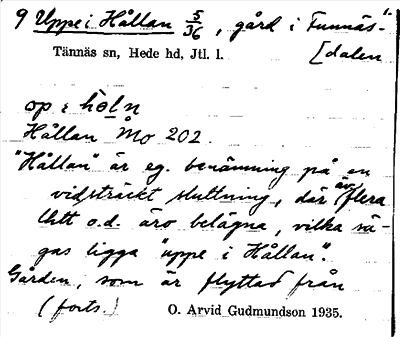 9 Uppe i Hållan 5/36, gård i Funnäs-
Tännäs sn, Hede hd, Jtl. l. [dalen
op i hòln
Hållan Åo 202.
"Hållan" är eg. benämning på en
vidsträckt sluttning, där även flera
lht o.d. äro belägna, vilka sä-
gas ligga "uppe i Hållan".
Gården, som är flyttad från
(forts.) O. Arvid Gudmundson 1935.